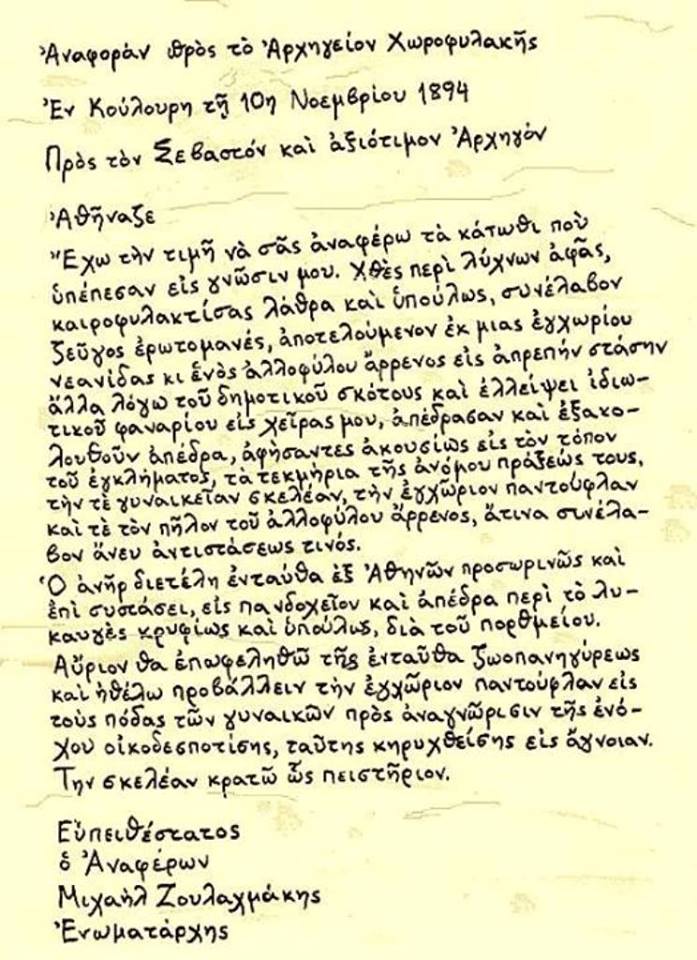 Ἀναφορὰν πρὸς τὸ Ἀρχηγεῖον Χωροφυλακῆς
Ἐν Κούλουρη τῇ 10η Νοεμβρίου 1894
Πρὸς τὸν Σεβαστόν καὶ ἀξιότιμον Ἀρχηγόν
Ἀθῆναζε
Ἔχω τὴν τιμῆ νὰ σᾶς ἀναφέρω τὰ κάτωθι ποὺ
ὑπέπεσαν εἰς γνῶσιν μου. Χθὲς περὶ λύχνων ἀφᾶς,
καιροφυλακτίσας λάθρα καὶ ὑπούλως, συνέλαβον
ζεῦγος ἐρωτομανές, ἀποτελούμενον ἐκ μιας ἐγχωρίου
νεανίδας κι ἑνὸς ἀλλοφύλου ἄρρενος εἰς ἀπρεπήν στάσην
ἄλλα λόγω τοῦ δημοτικοῦ σκότους καὶ ἐλλείψει ἰδιω-
τικοῦ φαναρίου εἰς χεῖρας μου, ἀπέδρασαν καὶ ἐξακο-
λουθοῦν ἀπέδρα, ἀφήσαντες ἀκουσίως εἰς τὸν τόπον
τοῦ ἐγκλήματος, τὰ τεκμήρια τῆς ἀνόμου πράξεώς τους,
τὴν τὲ γυναικεῖαν σκελέαν, τὴν ἐγχῶριον παντούφλαν
καὶ τὲ τὸν πῆλον τοῦ ἀλλοφύλου ἄρρενος, ἅτινα συνέλα-
βον ἄνευ ἀντιστάσεως τινός.
Ὁ ἀνὴρ διετέλη ἐνταύθα ἐξ Ἀθηνῶν προσωρινῶς καὶ
ἐπὶ συστάσει, εἰς πανδοχεῖον καὶ ἀπέδρα περὶ τὸ λυ-
καυγὲς κρυφίως καὶ ὑπούλως, διὰ τοῦ πορθμείου.
Αὔριον θα ἐπωφεληθῶ τῆς ἐνταῦθα ζωοπανηγύρεως
καὶ ἠθέλω προβάλλειν τὴν ἐγχῶριον παντούφλαν εἰς
τοὺς πόδας τῶν γυναικῶν πρὸς ἀναγνώρισιν τῆς ἐνό-
χου οἰκοδεσποτίσης, ταῦτης κηρυχθείσης εἰς ἄγνοιαν.
Την σκελέαν κρατῶ ὧς πειστήριον.
Εὐπειθέστατος
ὁ Ἀναφέρων
Μιχαὴλ Ζουλαχμάκης
Ἐνωματάρχης